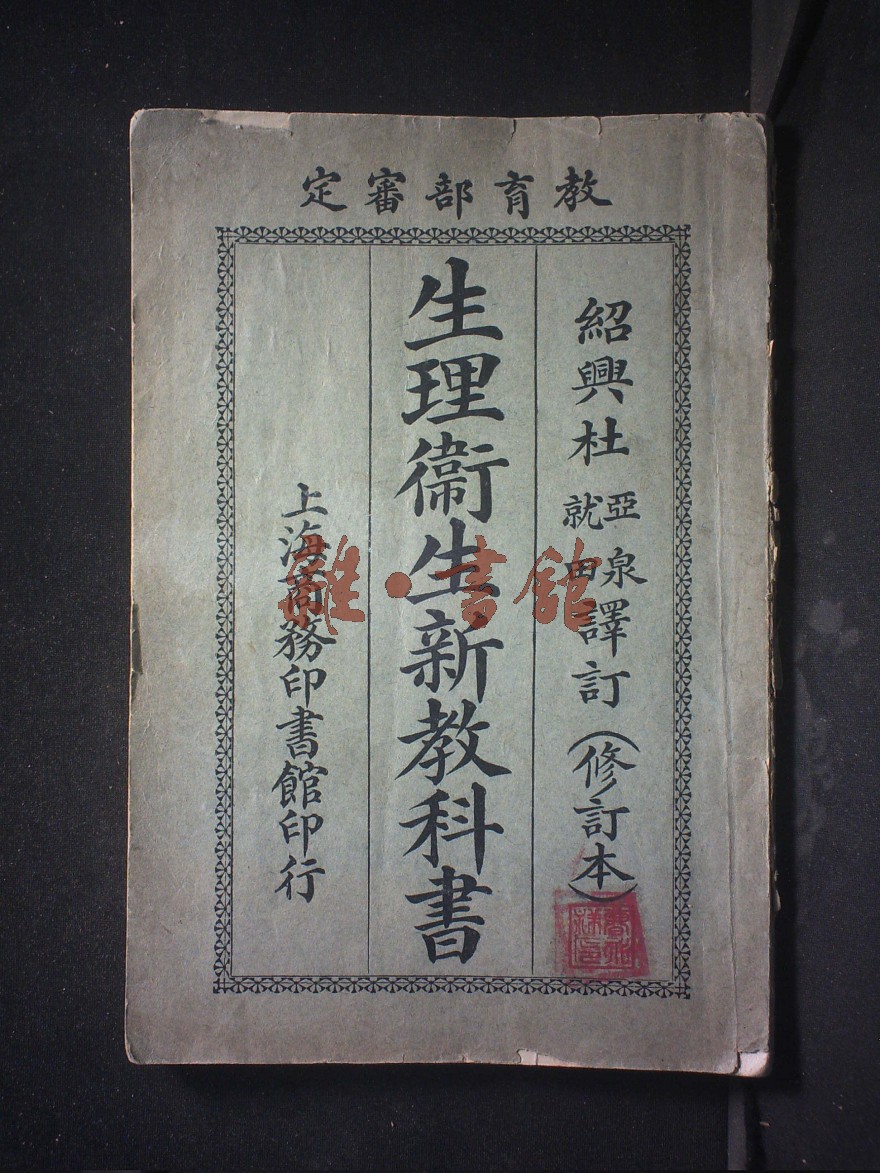 教育部審定
紹興杜亞泉就田譯訂(修訂本)
生理衞生新教科書
上海商務印書館印行
雜·書館